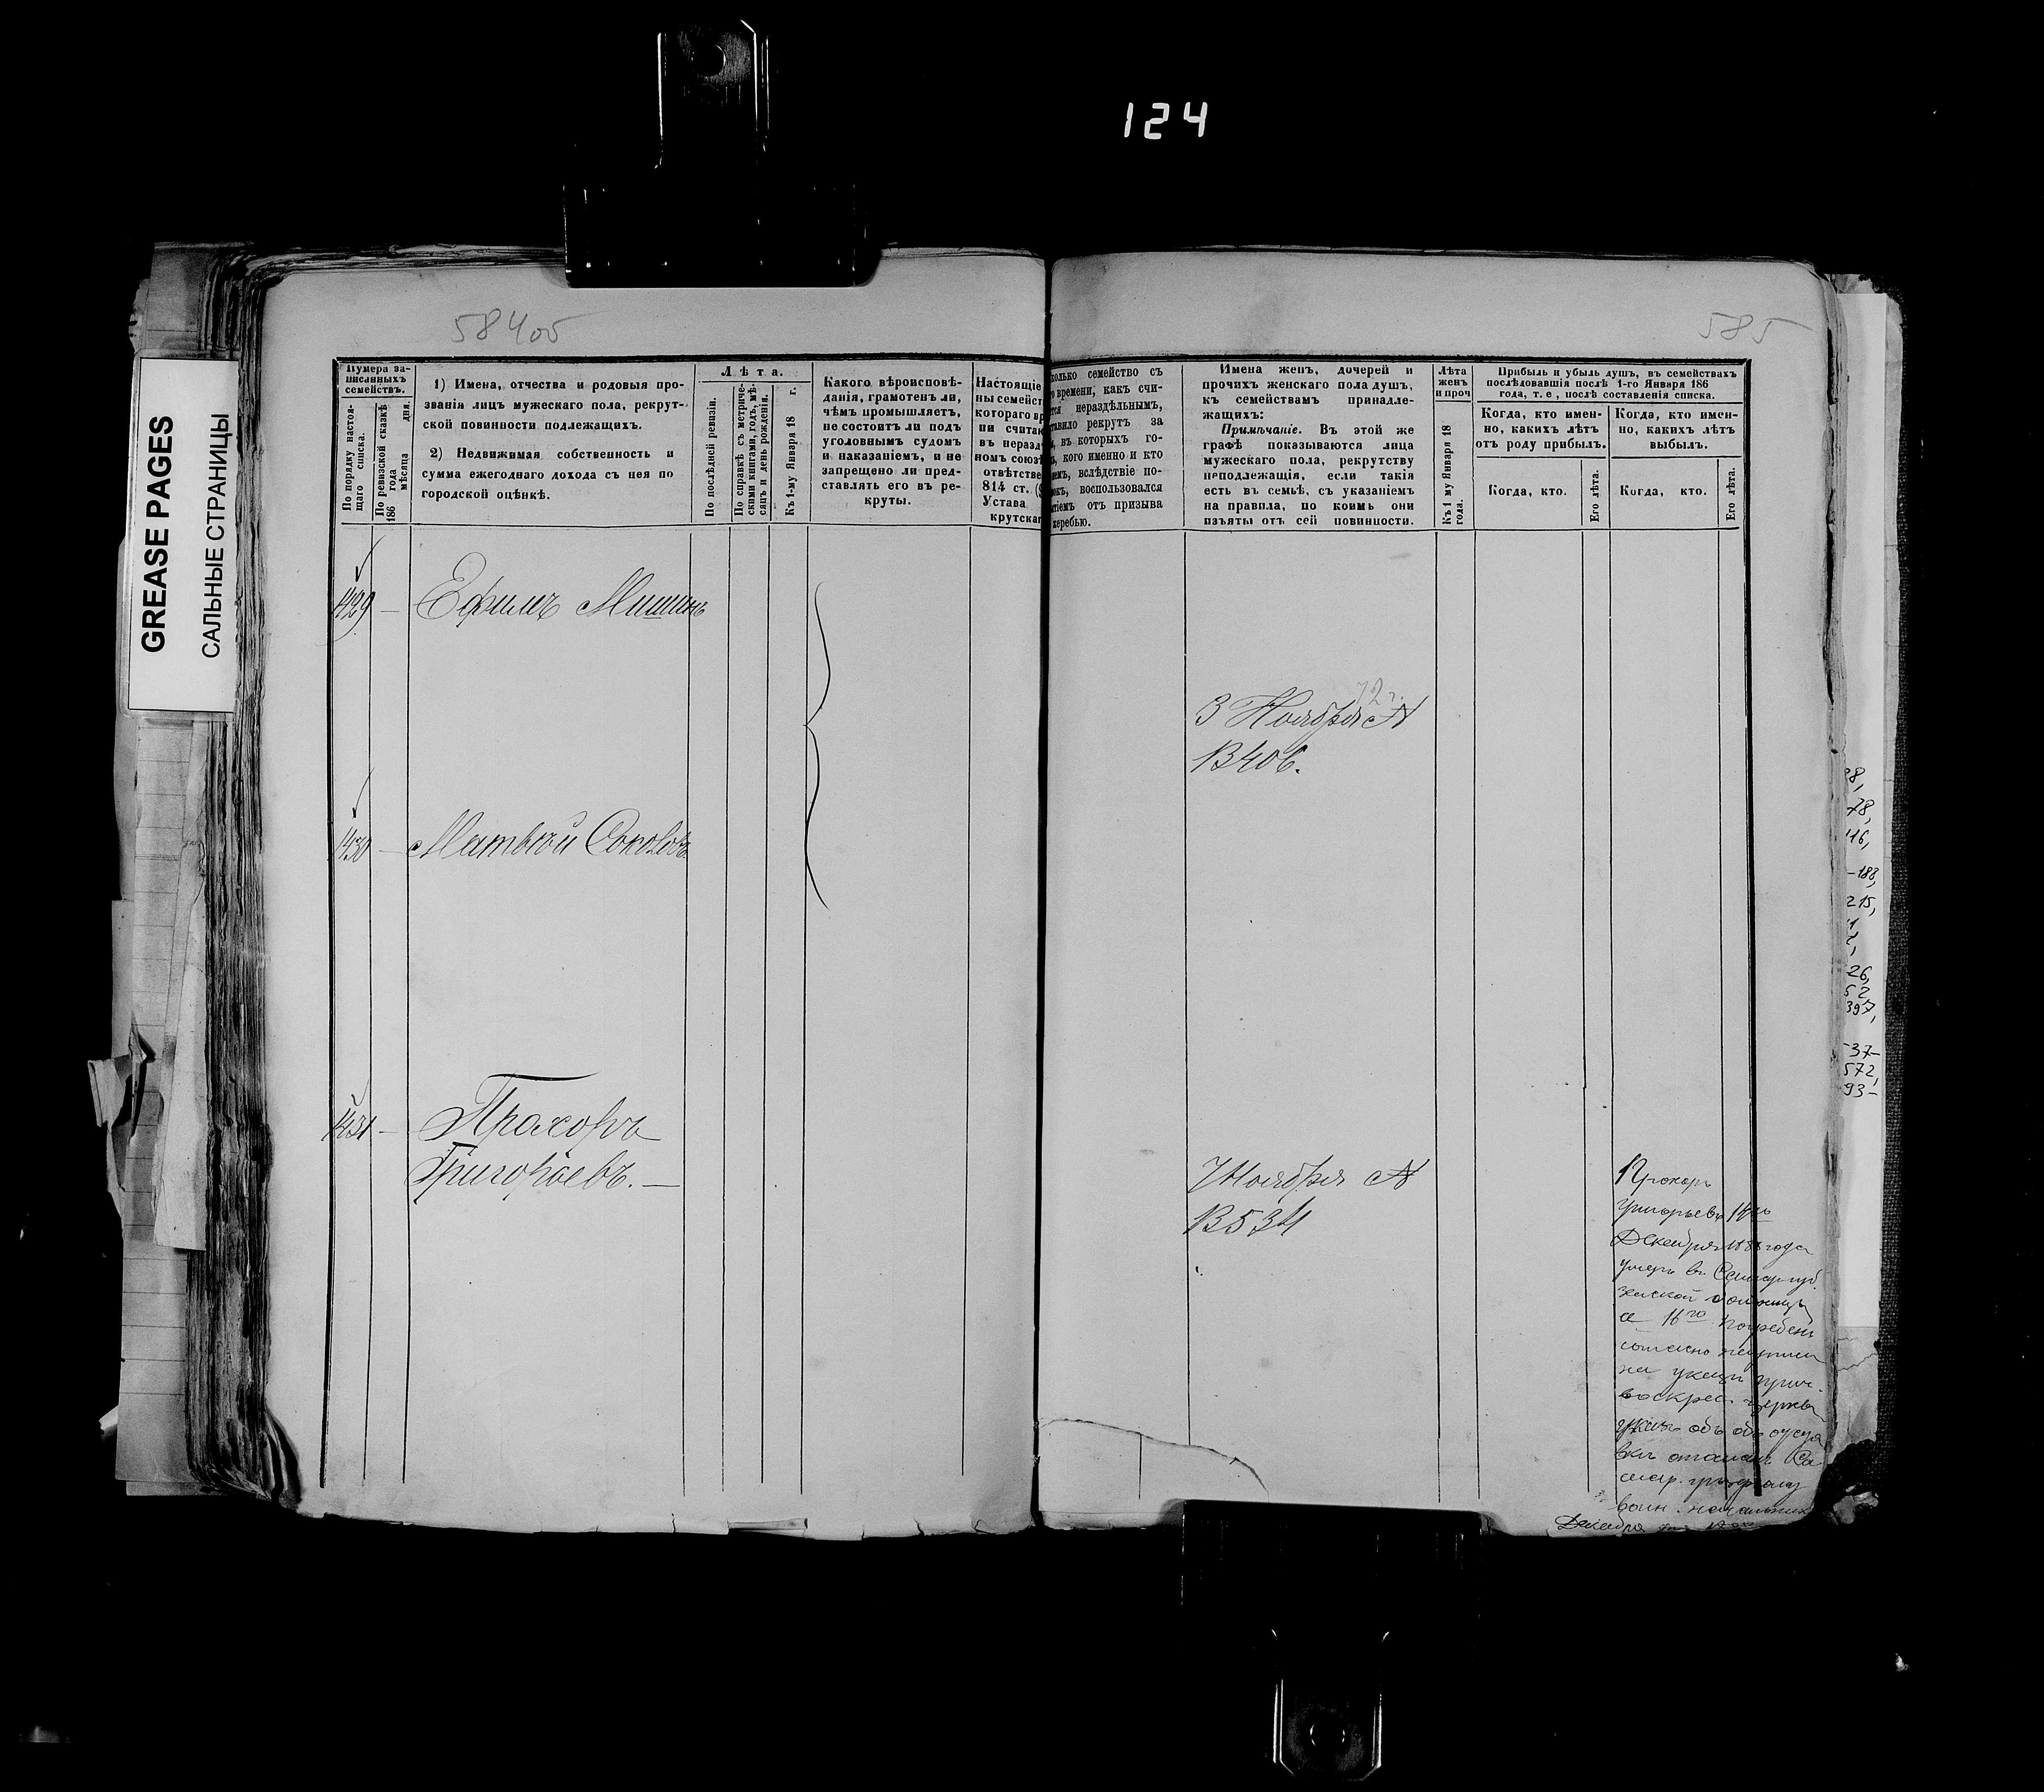 124
GREASE PAGES
САЛЬНЫЕ СТРАНИЦЫ
584об
585
Нумера за-
писанныхъ
семействъ.
По порядку настоя-
щаго списка.
По ревизской сказкѣ
186 года
мѣсяца дня.
1) Имена, отчества и родовыя про-
званія лицъ мужескаго пола, рекрут-
ской повинности подлежащихъ.
2) Недвижимая собственность и
сумма ежегоднаго дохода съ нея по
городской оцѣнкѣ.
Лѣта.
По послѣдней ревизіи.
По справкѣ съ метриче-
скими книгами, годъ, мѣ-
сяцъ и день рожденія.
Къ 1-му Января 18 г.
Какого вѣроисповѣ-
данія, грамотенъ ли,
чѣмъ промышляетъ,
не состоитъ ли подъ
уголовнымъ судомъ
и наказаніемъ, и не
запрещено ли пред-
ставлять его въ ре-
круты.
Настоящіе
ны семейст
котораго вр
ни считаю
въ нераздѣ
номъ союзѣ
отвѣтстве
814 ст. (
Устава
крутскаг
колько семейство съ
го времени, какъ счи-
тся нераздѣльнымъ,
тавило рекрутъ за
, въ которыхъ го-
, кого именно и кто
емъ, вслѣдствіе по-
окъ, воспользовался
тіемъ отъ призыва
жеребью.
Имена женъ, дочерей и
прочихъ женскаго пола душъ,
къ семействамъ принадле-
жащихъ:
Примѣчаніе. Въ этой же
графѣ показываются лица
мужескаго пола, рекрутству
неподлежащія, если такія
есть въ семьѣ, съ указаніемъ
на правила, по коимъ они
изъяты отъ сей повинности.
Лѣта
женъ
и проч
Къ 1 му Января 18
года.
Прибыль и убыль душъ, въ семействахъ
послѣдовавшія послѣ 1-го Января 186
года, т. е, послѣ составленія списка.
Когда, кто имен-
но, какихъ лѣтъ
отъ роду прибылъ.
Когда, кто.
Его лѣта.
Когда, кто имен-
но, какихъ лѣтъ
выбылъ.
Когда, кто.
Его лѣта.
1429 — Ефимъ Мишинъ
72 г.
3 Ноября №
13406.
1430 — Матвѣй Соколовъ
1431 — Прохоръ
Григорьевъ. —
7 Ноября №
13534
Прохоръ
Григорьевъ
Декабря года
умеръ въ Самар губ
земской больницѣ
а 16го погребенъ
воскрес. церкви
Са-
воин. начальник
Декабря
78,
116,
-188,
215,
26,
52,
397,
-37-
572,
93-